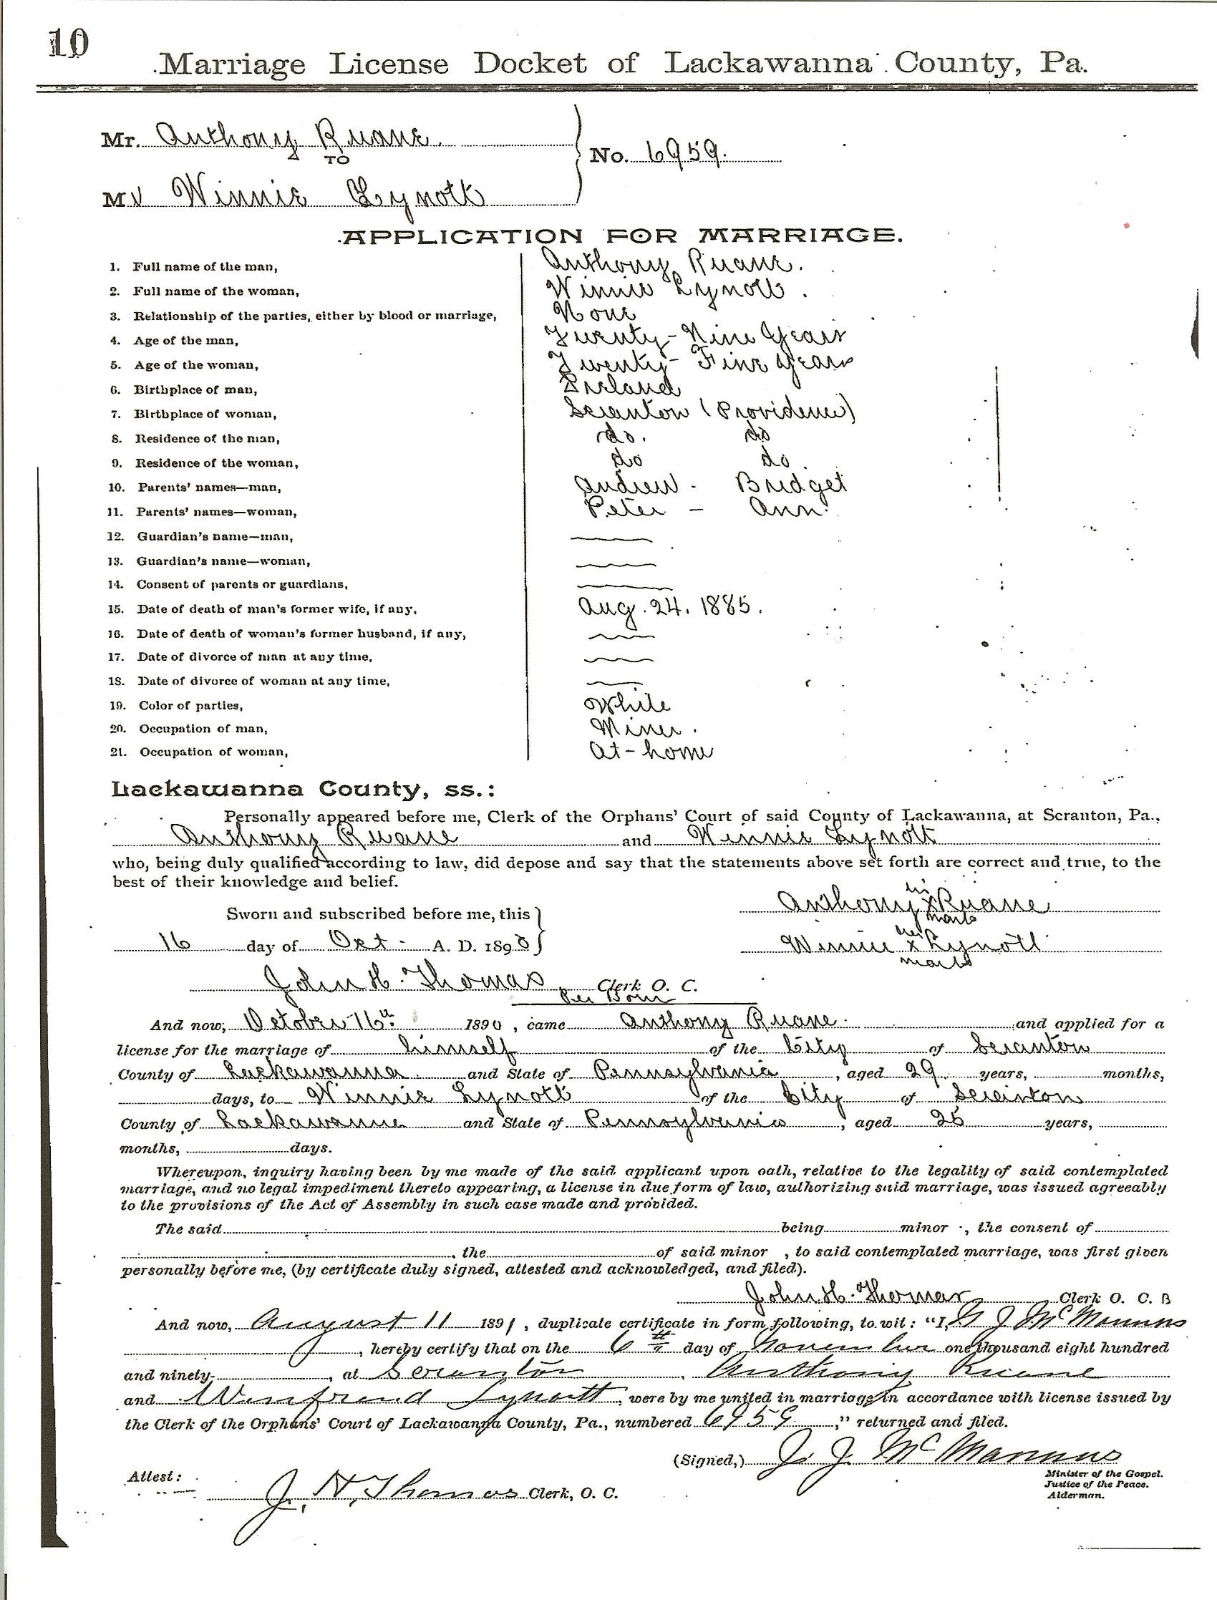 10
Marriage License Docket of Lackawanna County, Pa.
Mr. Anthony Ruane.
TO
M Winnie Lynott
No. 6959.
APPLICATION FOR MARRIAGE.
1. Full name of the man, Anthony Ruane.
2. Full name of the woman, Winnie Lynott.
3. Relationship of the parties, either by blood or marriage, None
4. Age of the man, Twenty-Nine Years
5. Age of the woman, Twenty-Five Years
6. Birthplace of man, Ireland
7. Birthplace of woman, Scranton (Providence)
8. Residence of the man, do. do
9. Residence of the woman, do do.
10. Parents' names—man, Andrew - Bridget
11. Parents' names—woman, Peter - Ann.
12. Guardian's name—man,
13. Guardian's name—woman,
14. Consent of parents or guardians,
15. Date of death of man's former wife, if any, Aug. 24. 1885.
16. Date of death of woman's former husband, if any,
17. Date of divorce of man at any time,
18. Date of divorce of woman at any time,
19. Color of parties, White
20. Occupation of man, Miner.
21. Occupation of woman, At-home
Lackawanna County, ss.:
Personally appeared before me, Clerk of the Orphans' Court of said County of Lackawanna, at Scranton, Pa.,
Anthony Ruane and Winnie Lynott
who, being duly qualified according to law, did depose and say that the statements above set forth are correct and true, to the
best of their knowledge and belief.
Sworn and subscribed before me, this
16 day of Oct. A. D. 1890
his
Anthony x Ruane
mark
her
Winnie x Lynott
mark
John H. Thomas Clerk O. C.
Per
And now, October 16th 1890, came Anthony Ruane. and applied for a
license for the marriage of himself of the City of Scranton
County of Lackawanna and State of Pennsylvania, aged 29 years, months,
days, to Winnie Lynott of the City of Scranton
County of Lackawanna and State of Pennsylvania, aged 25 years,
months, days.
Whereupon, inquiry having been by me made of the said applicant upon oath, relative to the legality of said contemplated
marriage, and no legal impediment thereto appearing, a license in due form of law, authorizing said marriage, was issued agreeably
to the provisions of the Act of Assembly in such case made and provided.
The said being minor, the consent of
, the of said minor, to said contemplated marriage, was first given
personally before me, (by certificate duly signed, attested and acknowledged, and filed).
John H. Thomas Clerk O. C.
And now, August 11 1891, duplicate certificate in form following, to wit: "I, J McManus
, hereby certify that on the 6th day of November one thousand eight hundred
and ninety- , at Scranton Anthony Ruane
and Winifred Lynott, were by me united in marriage in accordance with license issued by
the Clerk of the Orphans' Court of Lackawanna County, Pa., numbered 6959," returned and filed.
(Signed,) J. J. McManus
Minister of the Gospel.
Justice of the Peace.
Alderman.
Attest:
J. H. Thomas Clerk, O. C.